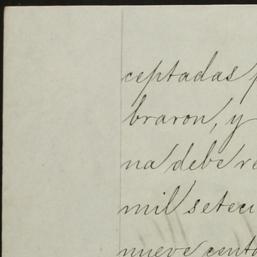 ceptadas p
braron, y
na debe re
mil seteci
nueve centa